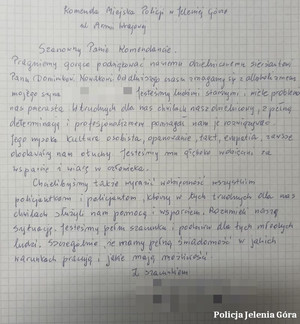 Komenda Miejska Policji w Jeleniej Górze
ul. Armii Krajowej
Szanowny Panie Komendancie.
Pragniemy gorąco podziękować naszemu dzielnicowemu sierżantowi
Panu Dominikowi. Od dłuższego czasu zmagamy się z alkoholizmem
mojego syna Jesteśmy ludźmi starszymi, i wiele problemów
nas przerasta. W trudnych dla nas chwilach nasz dzielnicowy, z pełną
determinacją i profesjonalizmem pomagał nam je rozwiązywać.
Jego wysoka kultura osobista, opanowanie, takt, empatia, zawsze
dodawały nam otuchy. Jesteśmy mu głęboko wdzięczni za
wsparcie i wiarę w człowieka.
Chcielibyśmy także wyrazić wdzięczność wszystkim
policjantkom i policjantom, którzy w tych trudnych dla nas
chwilach służyli nam pomocą i wsparciem. Rozumieli naszą
sytuację. Jesteśmy pełni szacunku i podziwu dla tych młodych
ludzi. Szczególnie, że mamy pełną świadomość w jakich
warunkach pracują i jakie mają możliwości.
Z szacunkiem
Policja Jelenia Góra